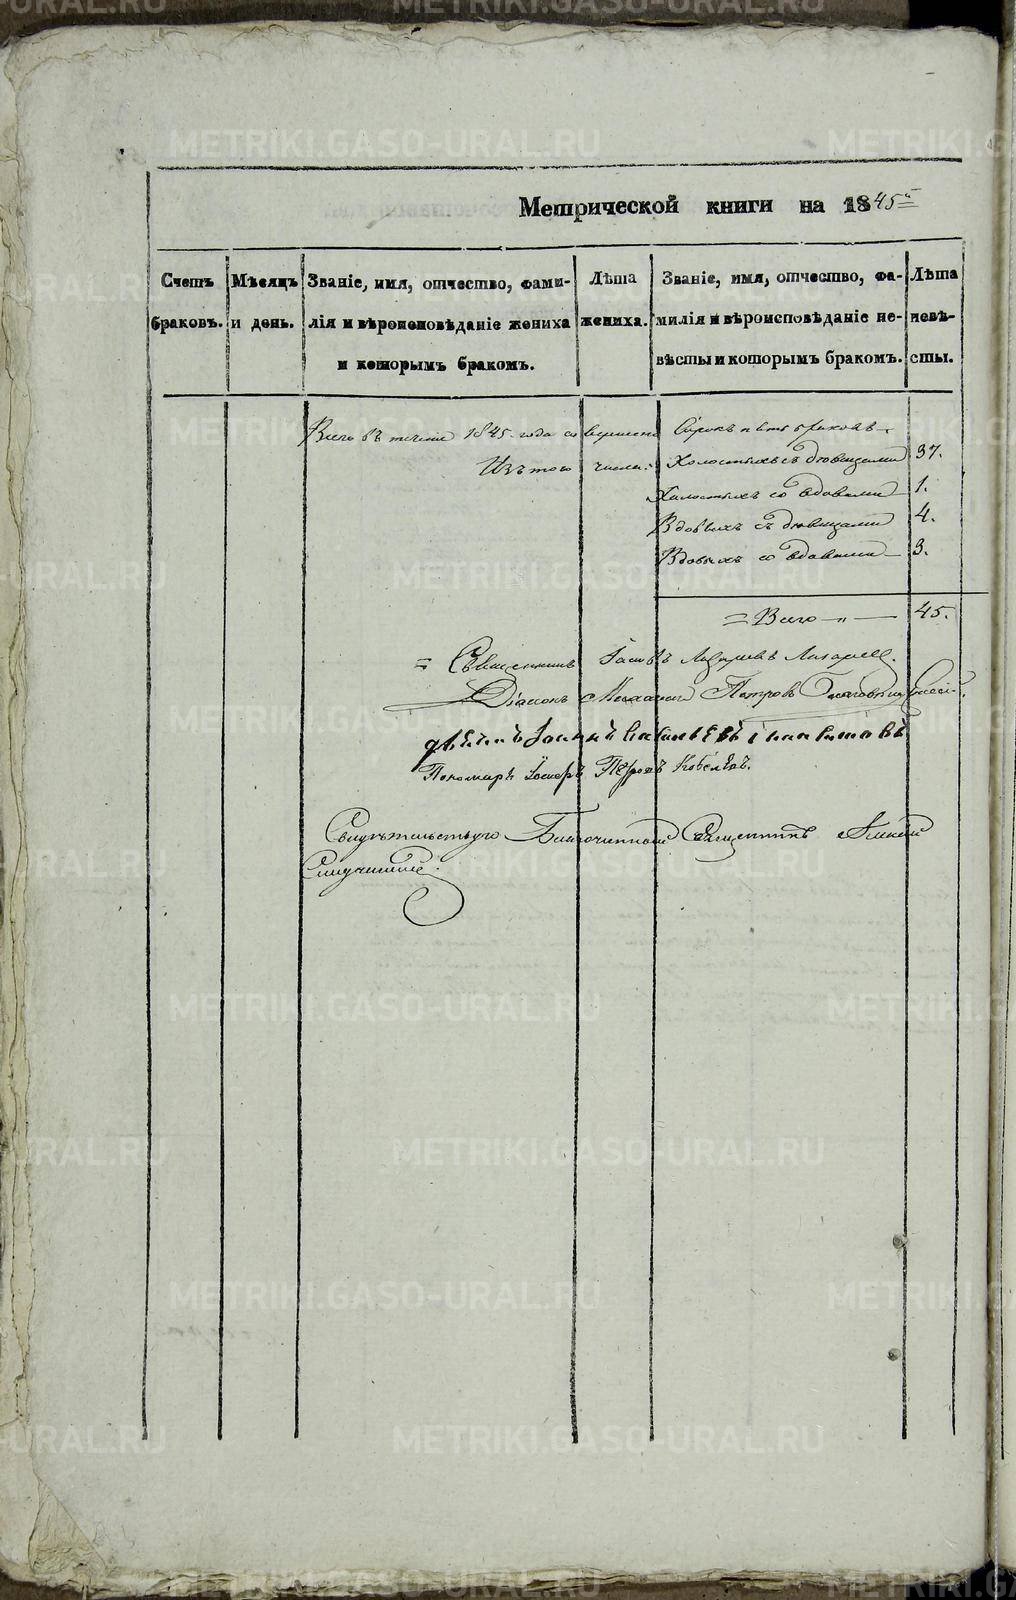 Метрической книги на 1845й
Счетъ браковъ.
Мѣсяцъ и день.
Званіе, имя, отчество, фами-
лія и вѣроисповѣданіе жениха
и которымъ бракомъ.
Лѣта
жениха.
Званіе, имя, отчество, фа-
милія и вѣроисповѣданіе не-
вѣсты и которымъ бракомъ.
Лѣта
невѣ-
сты.
Всего въ теченіе 1845. года совершено Сорокъ пять браковъ.
Изъ того числа: Холостыхъ съ дѣвицами 37.
Холостыхъ со вдовами 1.
Вдовыхъ съ дѣвицами 4.
Вдовыхъ со вдовами 3.
= Всего — „ — 45.
= Священникъ Іаковъ
Діаконъ Михаилъ Петровъ
Іоаннъ
Пономарь Петровъ
Свидѣтельствую Благочинный Священникъ
METRIKI.GASO-URAL.RU